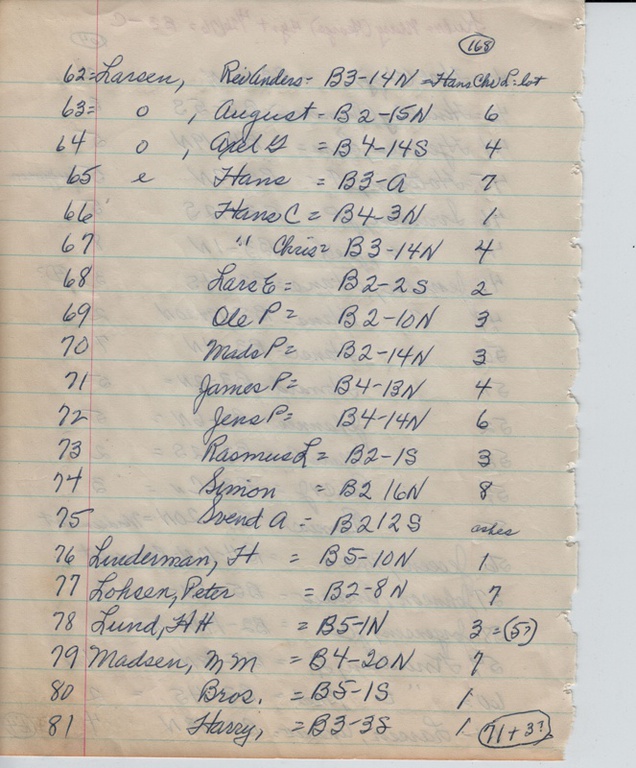 168
62= Larsen, Rev Anders = B3-14N = Hans Chr L. lot
63= o , August - B2-15N 6
64 o , Axel G = B4-14S 4
65 e Hans = B3-A 7
66 Hans C = B4-3N 1
67 " Chris = B3-14N 4
68 Lars E = B2-2S 2
69 Ole P = B2-10N 3
70 Mads P = B2-14N 3
71 James P = B4-13N 4
72 Jens P = B4-14N 6
73 Rasmus L = B2-1S 3
74 Simon = B2 16N 8
75 Svend A = B2 12S ashes
76 Linderman, H = B5-10N 1
77 Lohsen, Peter = B2-8N 7
78 Lund, HH = B5-1N 3 = (5?)
79 Madsen, MM = B4-20N 7
80 Bros. = B5-1S 1
81 Harry, = B3-3S 1 71+3?